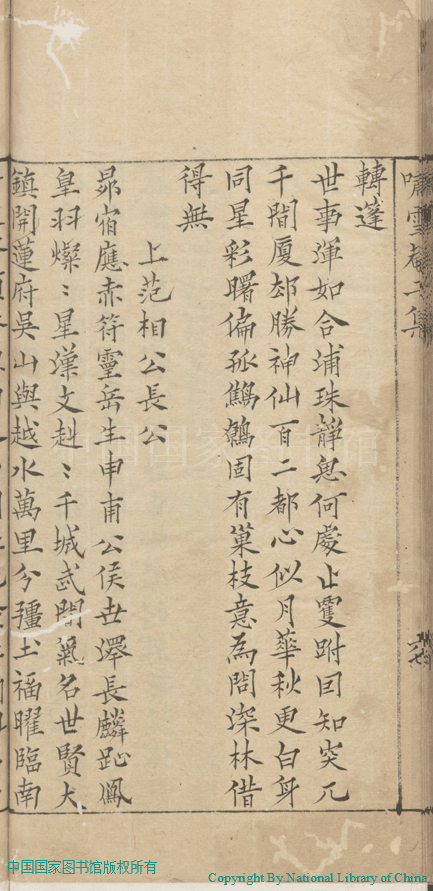 嘯雪菴二集
轉蓬
世事渾如合浦珠靜思何處止靈跗回知突兀
千間厦却勝神仙百二都心似月華秋更白身
同星彩曙偏孤鷦鷯固有巢枝意為問深林借
得無
上范相公長公
昴宿應赤符靈岳生申甫公侯世澤長麟趾鳳
皇羽燦〻星漢文赳〻干城武間氣名世賢大
鎮開蓮府吳山與越水萬里分疆土福曜臨南
中国国家图书馆
中国国家图书馆版权所有
Copyright By National Library of China